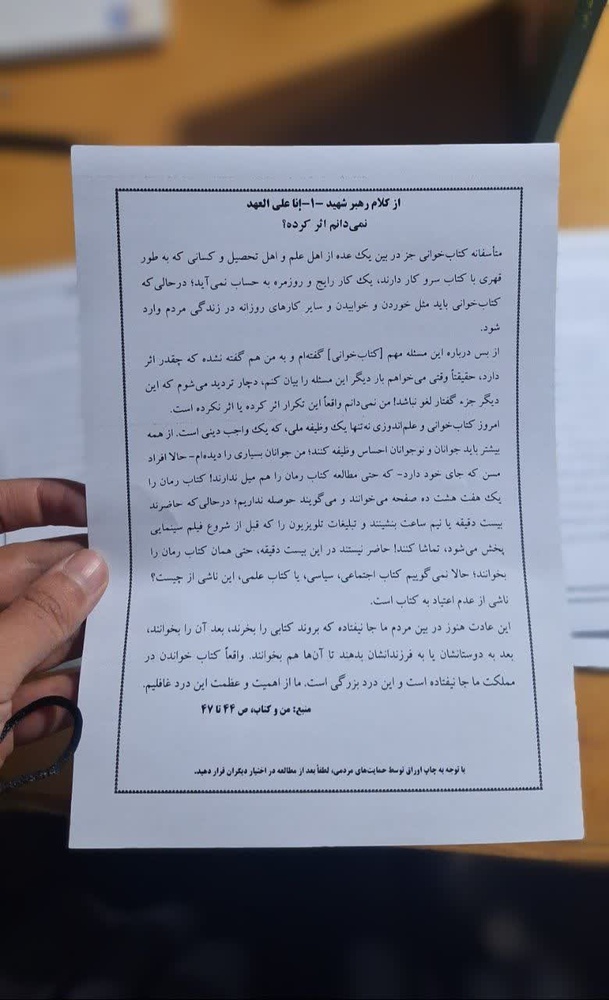 از کلام رهبر شهید -۱- إنا علی العهد
نمی‌دانم اثر کرده؟
متأسفانه کتاب‌خوانی جز در بین یک عده از اهل علم و اهل تحصیل و کسانی که به طور
قهری با کتاب سرو کار دارند، یک کار رایج و روزمره به حساب نمی‌آید؛ درحالی‌که
کتاب‌خوانی باید مثل خوردن و خوابیدن و سایر کارهای روزانه در زندگی مردم وارد
شود.
از بس درباره این مسئله مهم [کتاب‌خوانی] گفته‌ام و به من هم گفته نشده که چقدر اثر
دارد، حقیقتاً وقتی می‌خواهم بار دیگر این مسئله را بیان کنم، دچار تردید می‌شوم که این
دیگر جزء گفتار لغو نباشد! من نمی‌دانم واقعاً این تکرار اثر کرده یا اثر نکرده است.
امروز کتاب‌خوانی و علم‌اندوزی نه‌تنها یک وظیفه ملی، که یک واجب دینی است. از همه
بیشتر باید جوانان و نوجوانان احساس وظیفه کنند؛ من جوانان بسیاری را دیده‌ام- حالا افراد
مسن که جای خود دارد- که حتی مطالعه کتاب رمان را هم میل ندارند! کتاب رمان را
یک هفت هشت ده صفحه می‌خوانند و می‌گویند حوصله نداریم؛ درحالی‌که حاضرند
بیست دقیقه یا نیم ساعت بنشینند و تبلیغات تلویزیون را که قبل از شروع فیلم سینمایی
پخش می‌شود، تماشا کنند! حاضر نیستند در این بیست دقیقه، حتی همان کتاب رمان را
بخوانند؛ حالا نمی‌گوییم کتاب اجتماعی، سیاسی، یا کتاب علمی، این ناشی از چیست؟
ناشی از عدم اعتیاد به کتاب است.
این عادت هنوز در بین مردم ما جا نیفتاده که بروند کتابی را بخرند، بعد آن را بخوانند،
بعد به دوستانشان یا به فرزندانشان بدهند تا آن‌ها هم بخوانند. واقعاً کتاب خواندن در
مملکت ما جا نیفتاده است و این درد بزرگی است. ما از اهمیت و عظمت این درد غافلیم.
منبع: من و کتاب، ص ۴۴ تا ۴۷
با توجه به چاپ اوراق توسط حمایت‌های مردمی، لطفاً بعد از مطالعه در اختیار دیگران قرار دهید.